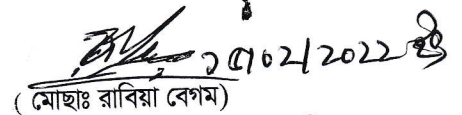 ১৫/০২/2022
(মোছাঃ রাবিয়া বেগম)